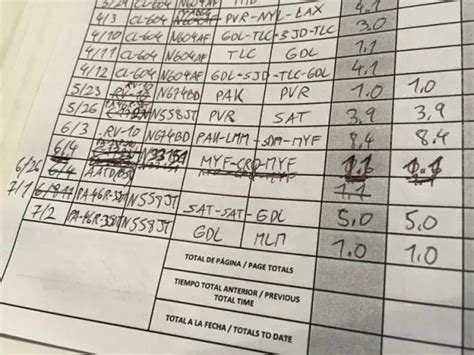 3/29 CL-604 4.1
4/3 CL-604 N604AF PVR-NYL-LAX
4/10 CL-604 N604AF GDL-TLC-SJD-TLC 5.0
4/11 CL-604 N604AF TLC GDL 1.1
4/12 CL-604 N604AF GDL-SJD-TLC-GDL 4.1
5/23 RV-10 N674BD PAK PVR 1.0 1.0
5/26 N558JT PVR SAT 3.9 3.9
6/3 RV-10 N674BD PAK-LMM-SDM-MYF 8.4 8.4
6/4 MYF-CRQ-MYF 1.1 1.1
6/26 6/4 AATD 1.1
7/1 PA-46R-350T N558JT SAT-SAT-GDL 5.0 5.0
7/2 PA-46R-350T N558JT GDL MLM 1.0 1.0
TOTAL DE PÁGINA / PAGE TOTALS
TIEMPO TOTAL ANTERIOR / PREVIOUS
TOTAL TIME
TOTAL A LA FECHA / TOTALS TO DATE